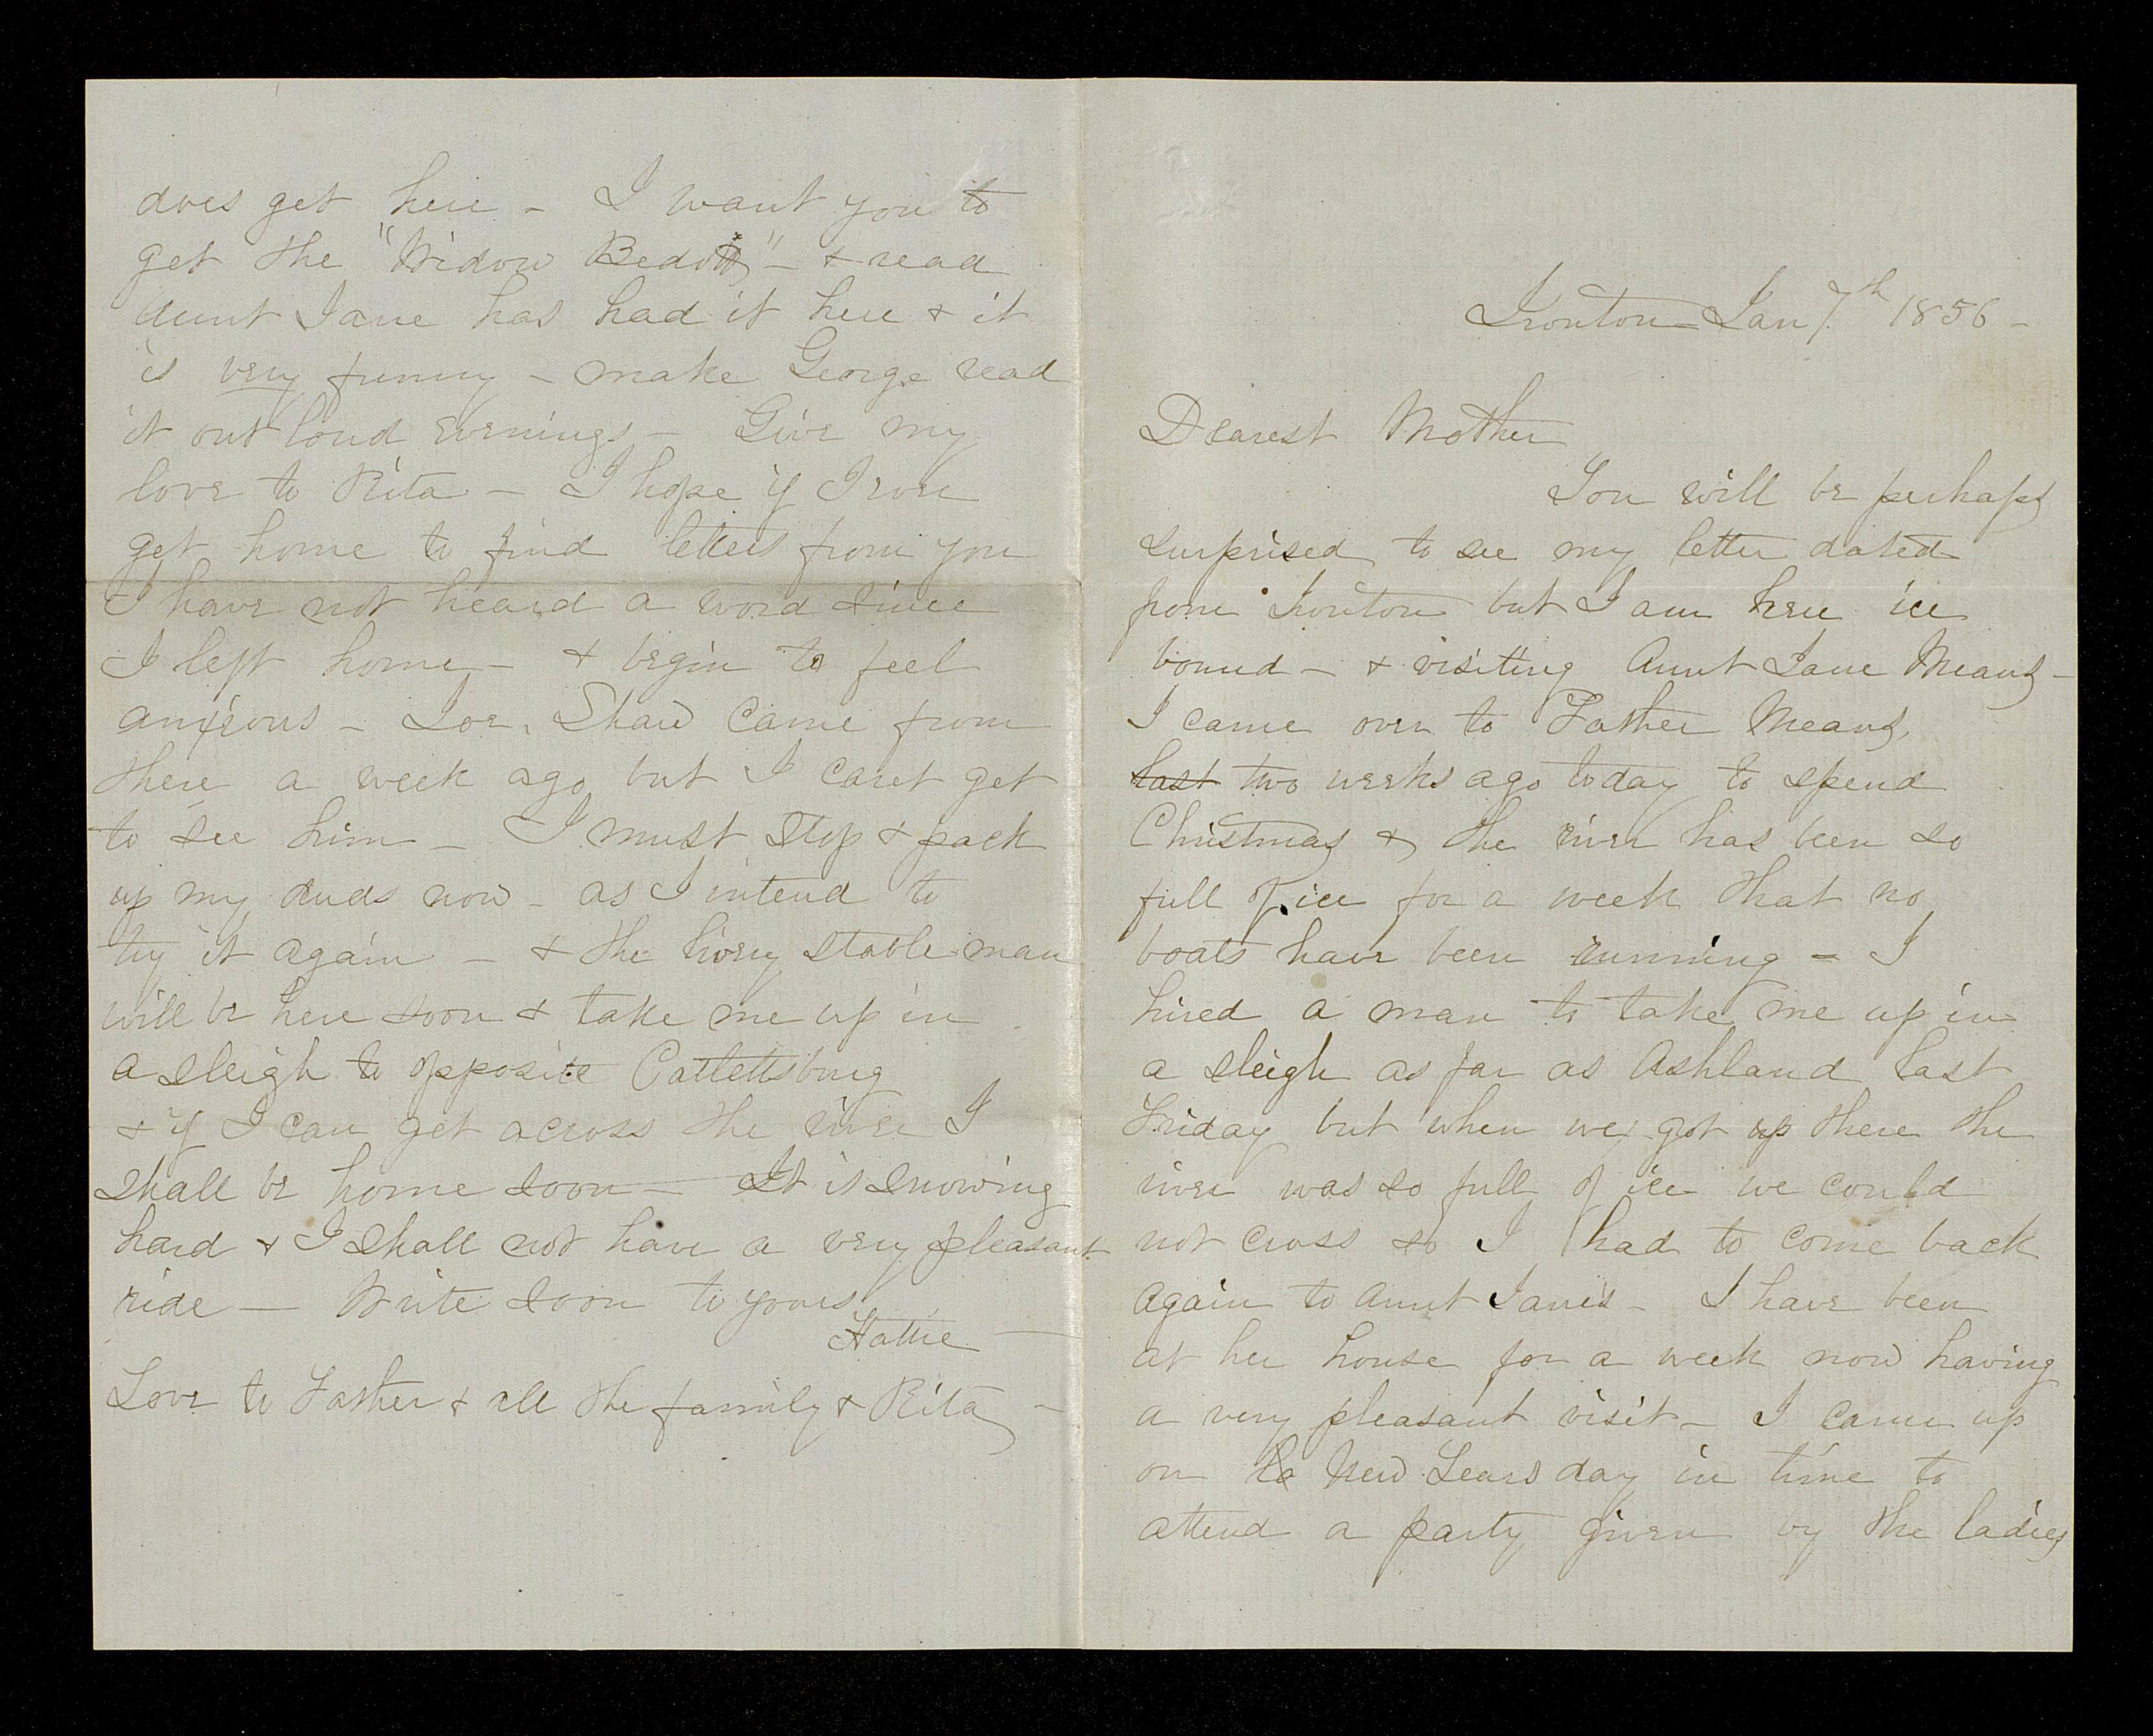 Ironton Jan 7th 1856 -
Dearest Mother
You will be perhaps
surprised to see my letter dated
from Ironton but I am here ice
bound - & visiting Aunt Jane Means -
I came over to Father Means,
last two weeks ago today to spend
Christmas & the river has been so
full of ice for a week that no
boats have been running - I
hired a man to take me up in
a sleigh as far as Ashland last
Friday but when we got up there the
river was so full of ice we could
not cross so I had to come back
again to Aunt Janes - I have been
at her house for a week now having
a very pleasant visit - I came up
on New Years day in time to
attend a party given by the ladies
does get here - I want you to
get the "Widow Bedott" - & read
Aunt Jane has had it here & it
is very funny - make George read
it out loud evenings - Give my
love to Rita - I hope if I ever
get home to find letters from you
I have not heard a word since
I left home - & begin to feel
anxious - Joe. Shaw came from
there a week ago but I cant get
to see him - I must stop & pack
up my duds now - as I intend to
try it again - & the livery stable man
will be here soon & take me up in
a sleigh to opposite Catlettsburg
& if I can get across the river I
shall be home soon - It is snowing
hard & I shall not have a very pleasant
ride - Write soon to yours,
Hattie -
Love to Father & all the family & Rita -